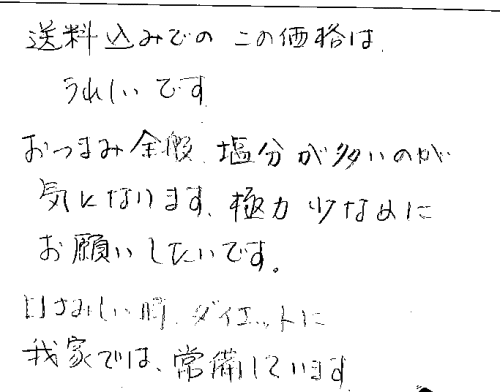 送料込みでの この価格は
うれしいです
おつまみ全般、塩分が多いのが
気になります、極力少なめに
お願いしたいです。
口さみしい時、ダイエットに
我家では、常備しています